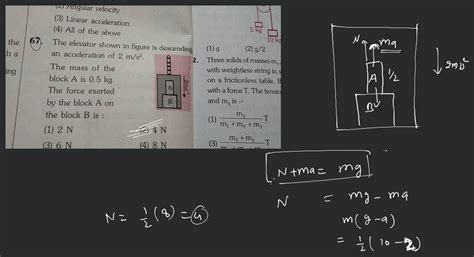 (2) Angular velocity
(3) Linear acceleration
(4) All of the above
the
h a
ing
67. The elevator shown in figure is descending
an acceleration of 2 m/s².
The mass of the
block A is 0.5 kg.
The force exerted
by the block A on
the block B is :
(1) 2 N
(2) 4 N
(3) 6 N
(4) 8 N
A
B
2m/s²
5 kg
10 kg
(1) g
(2) g/2
2. Three solids of masses m
with weightless string in s
on a frictionless table. If
with a force T. The tension
and m₃ is :-
(1) m₂ / m₁ + m₂ + m₃ T
(3) m₁ + m₂ T
N
ma
A
1/2
B
N + ma = mg
N = mg - ma
m(g-a)
= 1/2 (10 - 2)
N = 1/2 (8) = 4